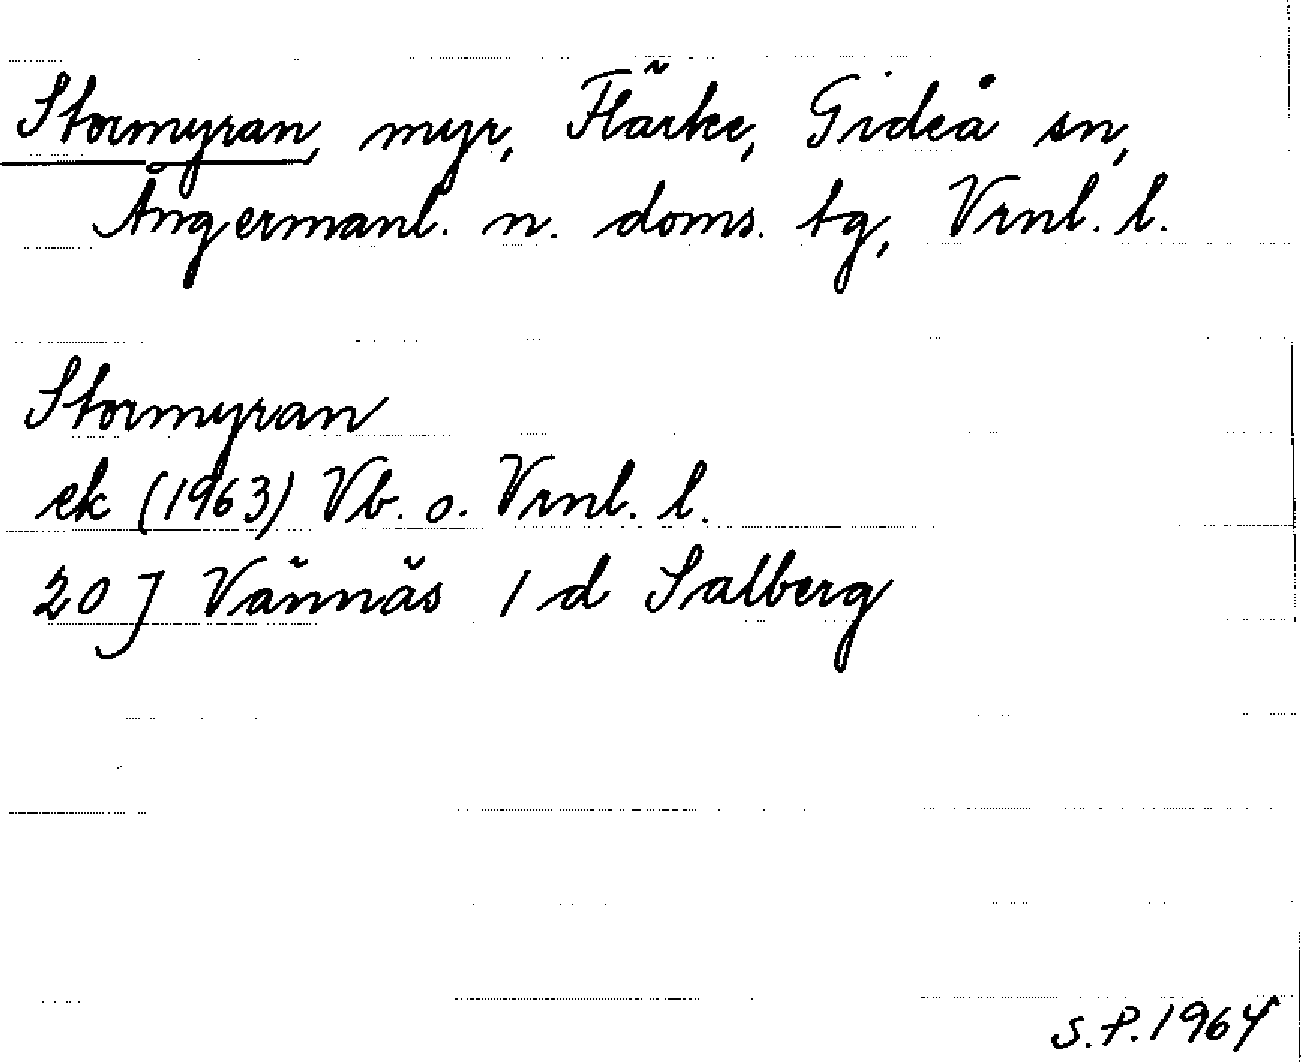 Stormyran, myr, Flärke, Gideå sn,
Ångermanl. n. doms. tg, Vrnl. l.
Stormyran
ek (1963) Vb. o. Vrnl. l.
20 J Vännäs 1 d Salberg
S.P. 1964